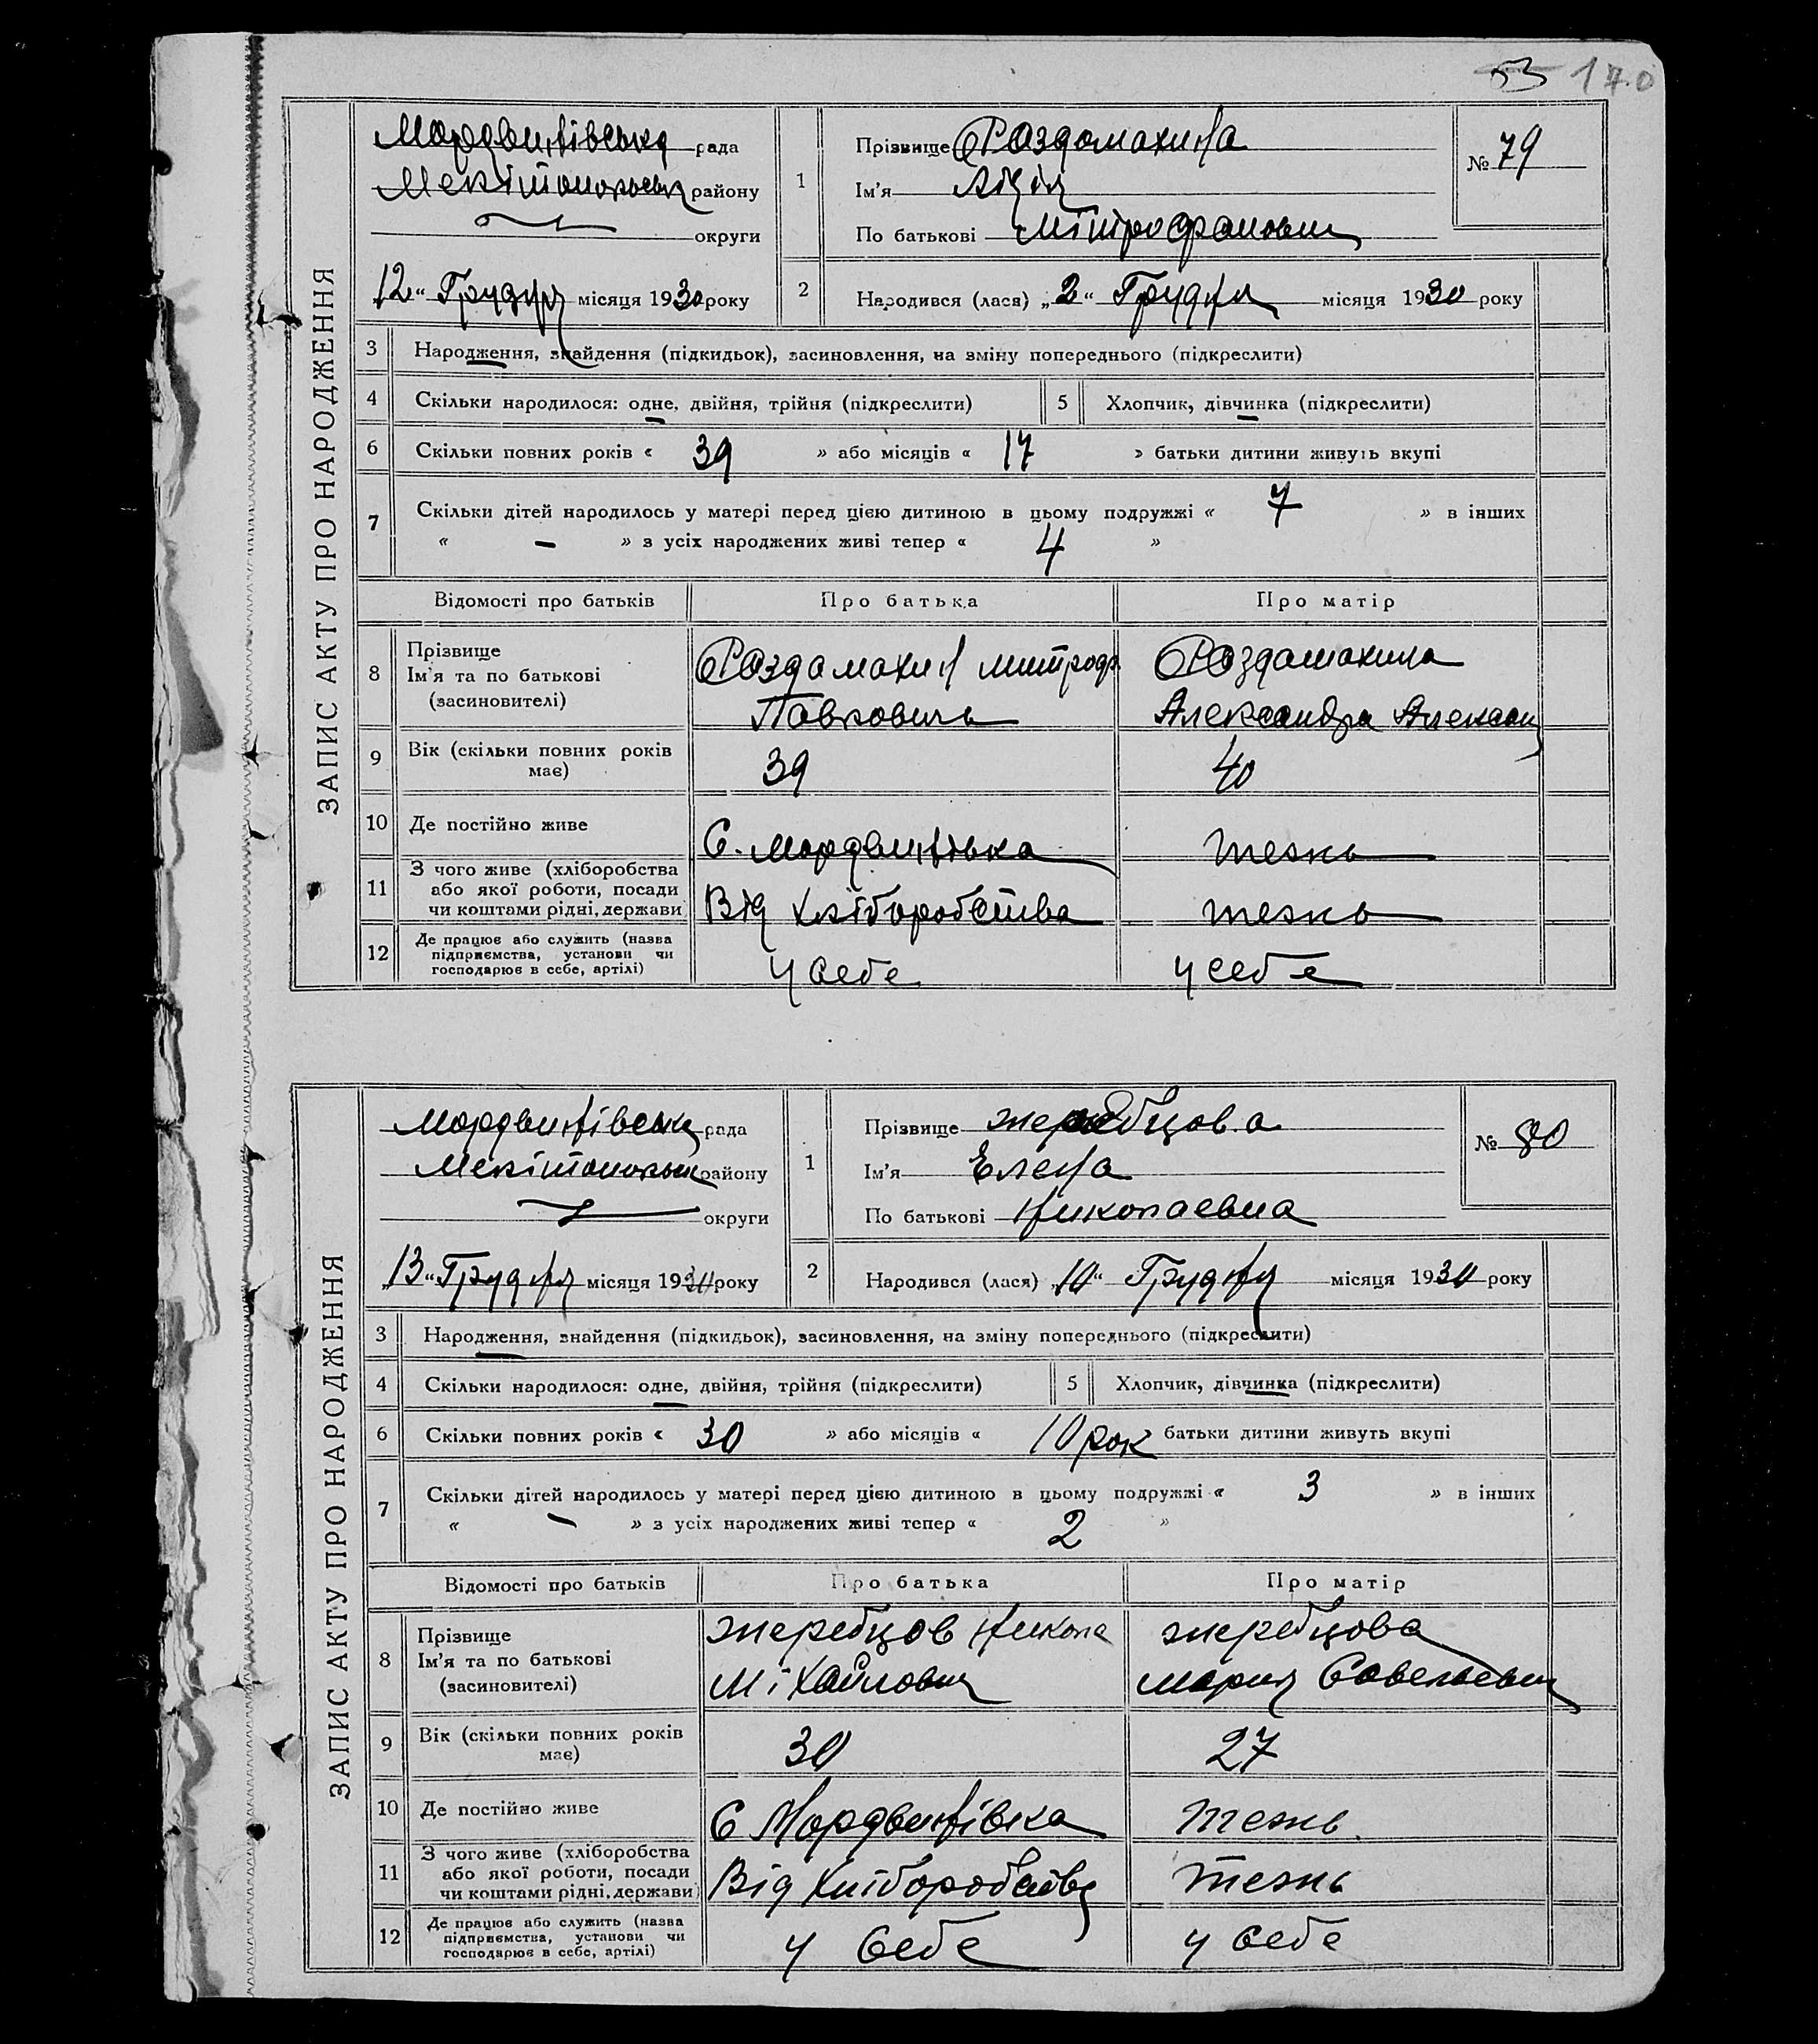 53 170
ЗАПИС АКТУ ПРО НАРОДЖЕННЯ
Мордвинівська рада
Мелітопольськ району
округи
12 " Грудня місяця 1930 року
1
Прізвище Роздомахина
Ім'я Лідія
По батькові Мітрофановн
№ 79
2
Народився (лася) „ 2 " Грудня місяця 1930 року
3 Народження, знайдення (підкидьок), засиновлення, на зміну попереднього (підкреслити)
4 Скільки народилося: одне, двійня, трійня (підкреслити) 5 Хлопчик, дівчинка (підкреслити)
6 Скільки повних років « 39 » або місяців « 17 » батьки дитини живуть вкупі
7 Скільки дітей народилось у матері перед цією дитиною в цьому подружжі « 7 » в інших
« — » з усіх народжених живі тепер « 4 »
Відомості про батьків Про батька Про матір
8 Прізвище
Ім'я та по батькові
(засновителі)
Роздамахин Митроф
Павлович
Роздамахина
Александра Алексан
9 Вік (скільки повних років
має)
39 40
10 Де постійно живе С. Мордвинівка тежь
11 З чого живе (хліборобства
або якої роботи, посади
чи коштами рідні, держави
Від Хліборобства тежь
12 Де працює або служить (назва
підприємства, установи чи
господарює в себе, артілі)
у себе у себе
ЗАПИС АКТУ ПРО НАРОДЖЕННЯ
Мордвинівськ рада
Мелітопольськ району
округи
„ 13 " Грудня місяця 1930 року
1
Прізвище Жеребцова
Ім'я Елена
По батькові Николаевна
№ 80
2
Народився (лася) „ 10 " Грудня місяця 1930 року
3 Народження, знайдення (підкидьок), засиновлення, на зміну попереднього (підкреслити)
4 Скільки народилося: одне, двійня, трійня (підкреслити) 5 Хлопчик, дівчинка (підкреслити)
6 Скільки повних років « 30 » або місяців « 10 рок батьки дитини живуть вкупі
7 Скільки дітей народилось у матері перед цією дитиною в цьому подружжі « 3 » в інших
« — » з усіх народжених живі тепер « 2 »
Відомості про батьків Про батька Про матір
8 Прізвище
Ім'я та по батькові
(засиновителі)
Жеребцов Никола
Міхайлович
Жеребцова
Мария Савельевн
9 Вік (скільки повних років
має)
30 27
10 Де постійно живе С Мордвинівка тежь
11 З чого живе (хліборобства
або якої роботи, посади
чи коштами рідні, держави
Від Хліборобства тежь
12 Де працює або служить (назва
підприємства, установи чи
господарює в себе, артілі)
у себе у себе